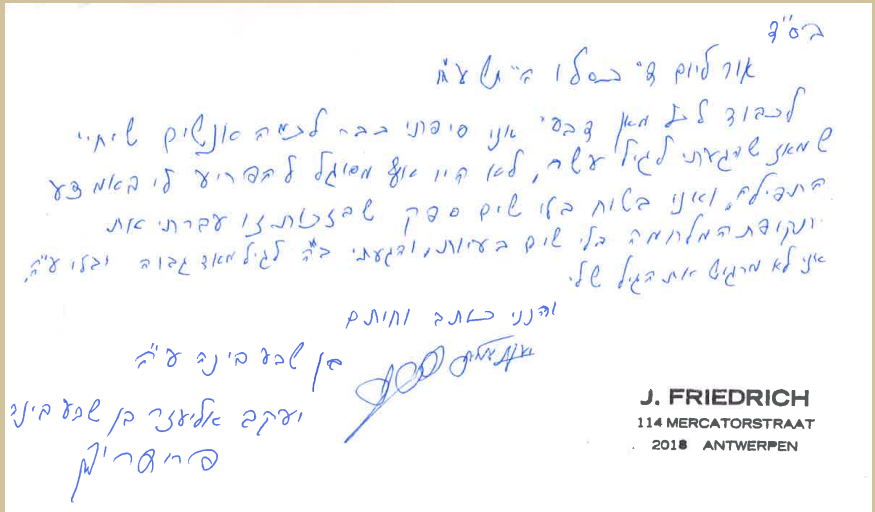 בס"ד
אור ליום ד' כסלו ה'תשע"ח
לכבוד לכל מאן דבעי אני סיפרתי כבר לכמה אנשים שיחיי
שמאז שהגעתי לגיל עשר, לא היו אף מסוגל להפריע לי באמצע
התפילה, ואני בטוח בלי שום ספק שבזכות זו עברתי את
תקופת המלחמה בלי שום בעיות, והגעתי ב"ה לגיל מאד גבוה ובלי עי"ה,
אני לא מרגיש את הגיל שלי
והנני כותב וחותם
בן שבע בינה ע"ה
יעקב אליעזר בן שבע בינה
פריעדריך
J. FRIEDRICH
114 MERCATORSTRAAT
2018 ANTWERPEN